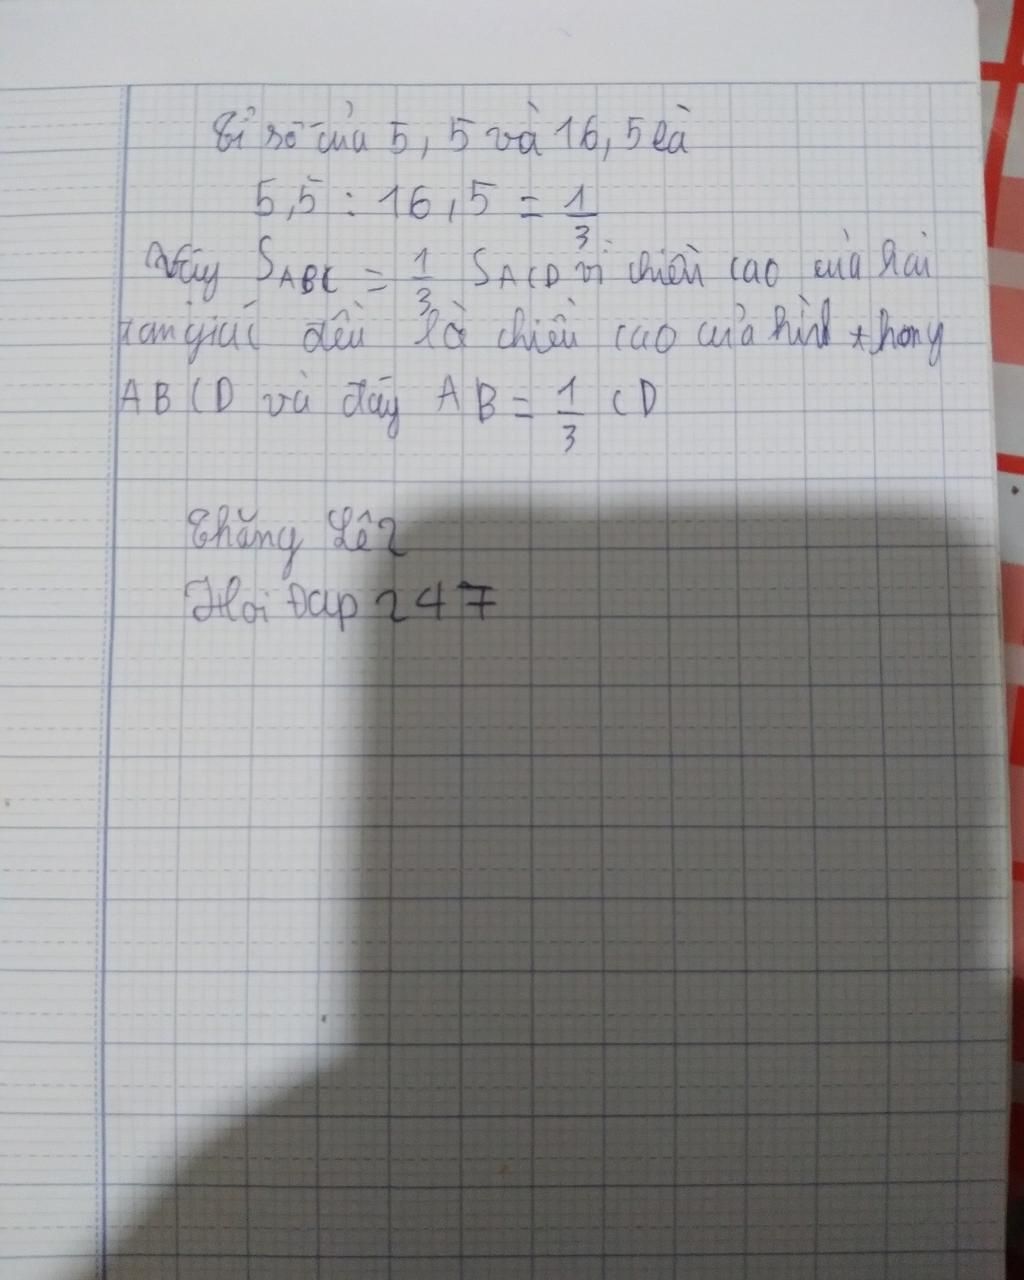 Tỉ số của 5,5 và 16,5 là
5,5 : 16,5 = 1/3
Vậy SABC = 1/3 SACD vì chiều cao của hai
tam giác đều là chiều cao của hình thang
ABCD và đáy AB = 1/3 CD
Thăng Lê2
Hoi Đap 247